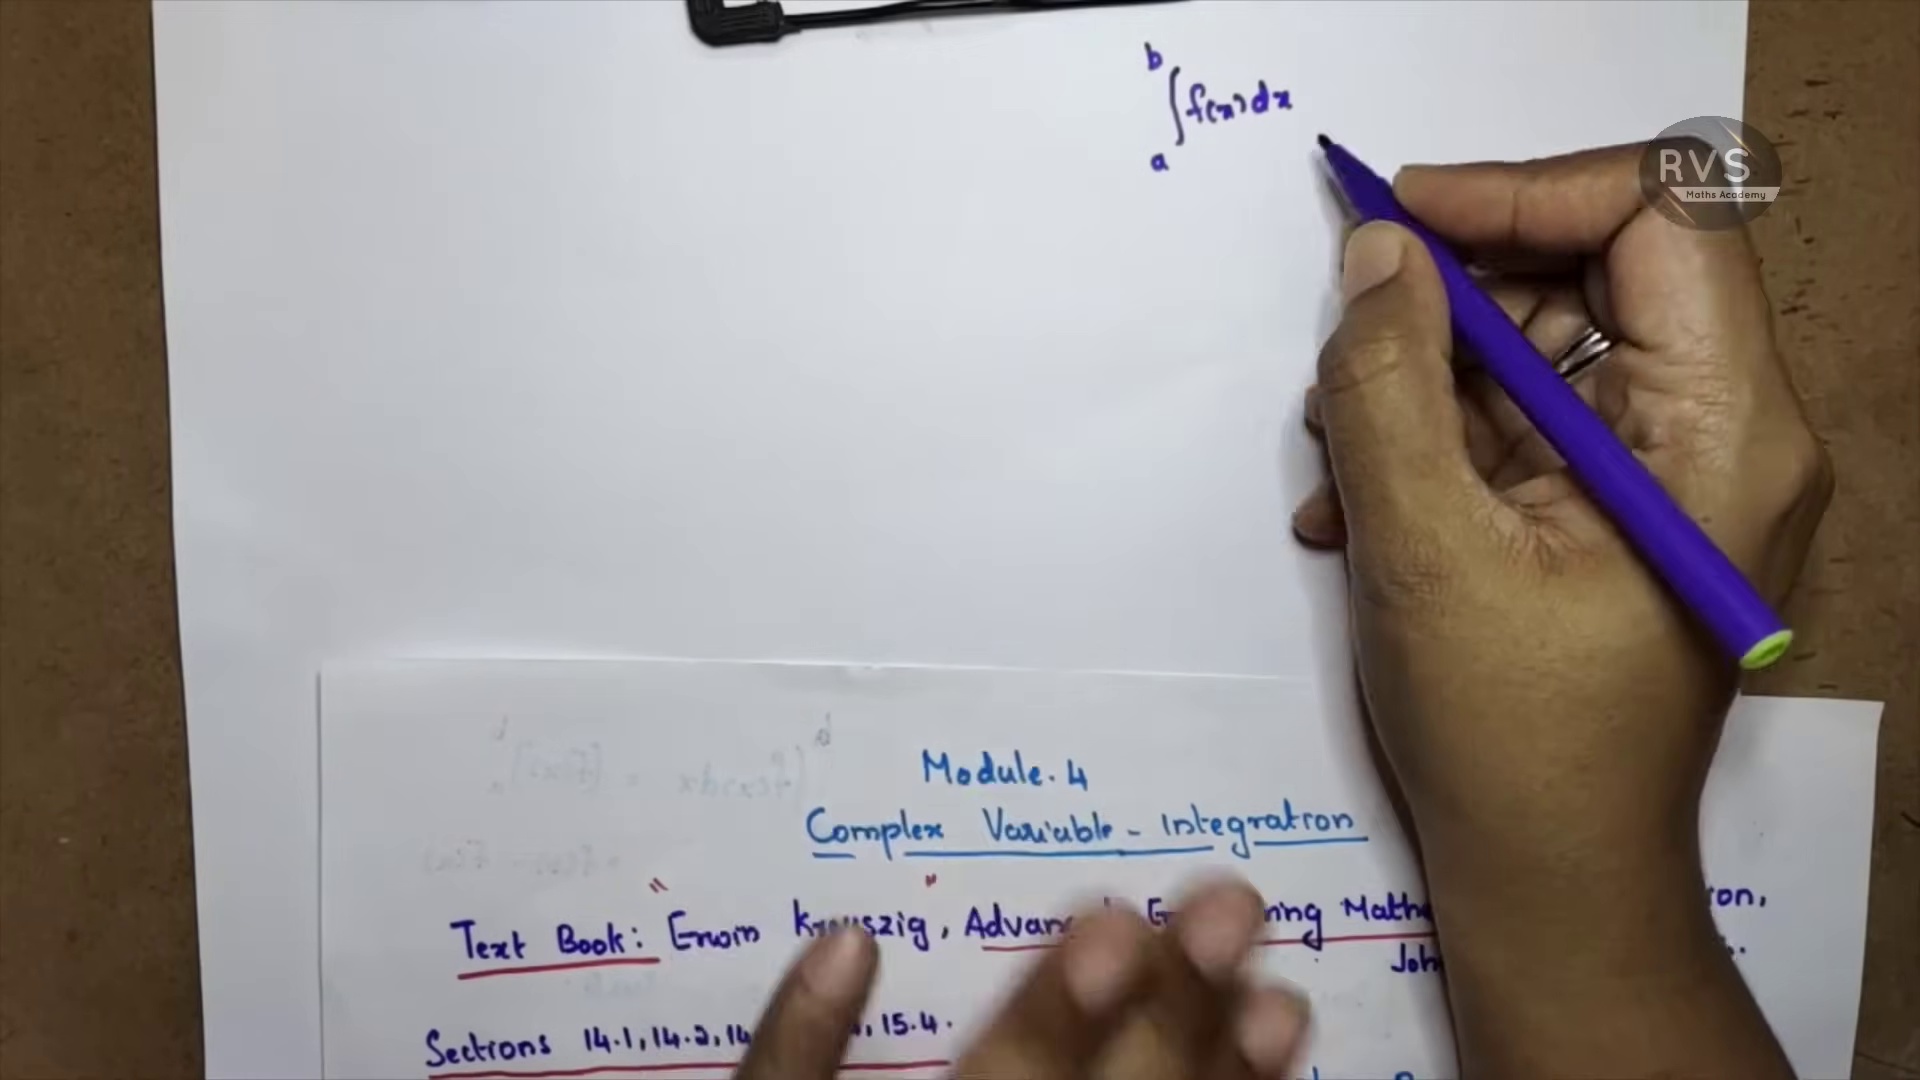 b
∫f(x)dx
a
RVS
Maths Academy
Module. 4
Complex Variable - Integration
Text Book: " Erwin Kreyszig, " Advan Mathe ron,
Joh
Sections 14.1, 14.2, 14 , 15.4.